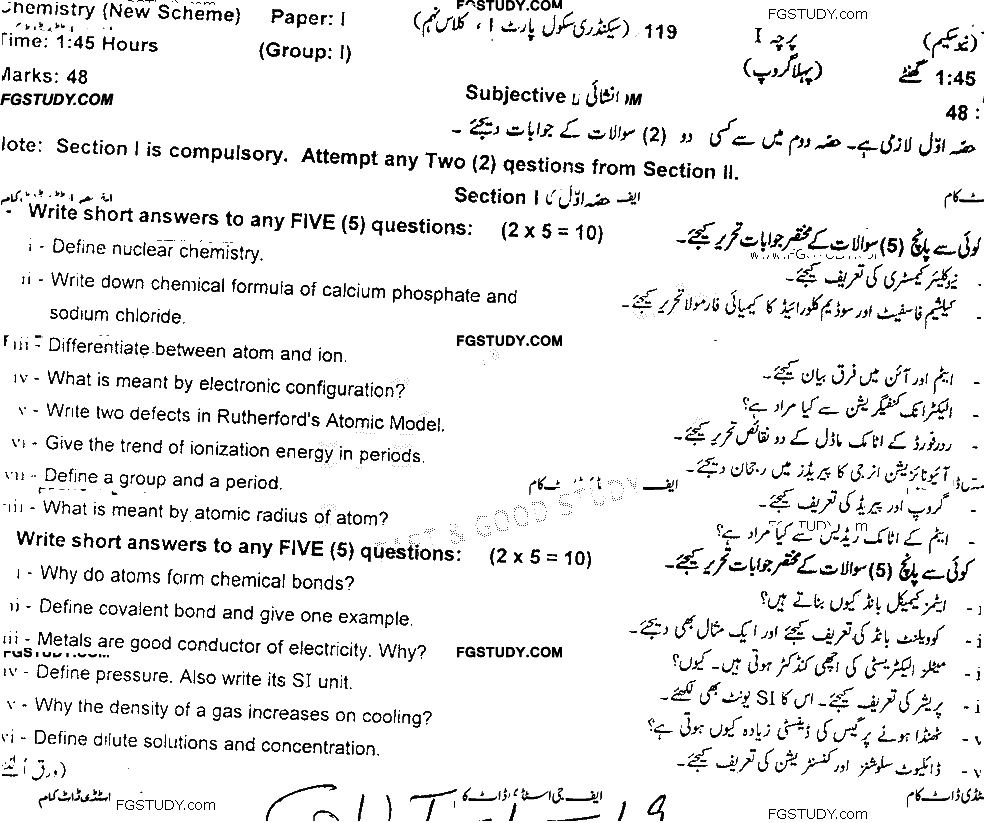 FGSTUDY.COM FGSTUDY.com
Chemistry (New Scheme) Paper: I 119 (سیکنڈری سکول پارٹ I ، کلاس نہم) پرچہ I (نیو سکیم)
Time: 1:45 Hours (Group: I) (پہلا گروپ) 1:45 گھنٹے
Marks: 48
FGSTUDY.COM Subjective انشائی 48 :
حصہ اوّل لازمی ہے۔ حصہ دوم میں سے کسی دو (2) سوالات کے جوابات دیجئے ۔
Note: Section I is compulsory. Attempt any Two (2) qestions from Section II.
Section I حصہ اوّل ایف
Write short answers to any FIVE (5) questions: (2 x 5 = 10) کوئی سے پانچ (5) سوالات کے مختصر جوابات تحریر کیجئے۔
i - Define nuclear chemistry. نیوکلیئر کیمسٹری کی تعریف کیجئے۔
ii - Write down chemical formula of calcium phosphate and کیلشیم فاسفیٹ اور سوڈیم کلورائیڈ کا کیمیائی فارمولا تحریر کیجئے۔
sodium chloride.
FGSTUDY.COM
iii - Differentiate between atom and ion. ایٹم اور آئن میں فرق بیان کیجئے۔
iv - What is meant by electronic configuration? الیکٹرانک کنفیگریشن سے کیا مراد ہے؟
v - Write two defects in Rutherford's Atomic Model. ردرفورڈ کے اٹامک ماڈل کے دو نقائص تحریر کیجئے۔
vi - Give the trend of ionization energy in periods. آئیونائزیشن انرجی کا پیریڈز میں رجحان دیجئے۔
vii - Define a group and a period. گروپ اور پیریڈ کی تعریف کیجئے۔
FAST & GOOD STUDY
viii - What is meant by atomic radius of atom? ایٹم کے اٹامک ریڈیس سے کیا مراد ہے؟
Write short answers to any FIVE (5) questions: (2 x 5 = 10) کوئی سے پانچ (5) سوالات کے مختصر جوابات تحریر کیجئے۔
i - Why do atoms form chemical bonds? ایٹمز کیمیکل بانڈ کیوں بناتے ہیں؟
ii - Define covalent bond and give one example. کوویلنٹ بانڈ کی تعریف کیجئے اور ایک مثال بھی دیجئے۔
iii - Metals are good conductor of electricity. Why? FGSTUDY.COM میٹلز الیکٹریسٹی کی اچھی کنڈکٹر ہوتی ہیں۔ کیوں؟
FGSTUDY.COM
iv - Define pressure. Also write its SI unit. پریشر کی تعریف کیجئے۔ اس کا SI یونٹ بھی لکھئے۔
v - Why the density of a gas increases on cooling? ٹھنڈا ہونے پر گیس کی ڈینسٹی زیادہ کیوں ہوتی ہے؟
vi - Define dilute solutions and concentration. ڈائلیوٹ سلوشنز اور کنسنٹریشن کی تعریف کیجئے۔
(ورق الٹئے)
اسٹڈی ڈاٹ کام FGSTUDY.com ایف جی اسٹڈی ڈاٹ کا FGSTUDY.com سٹڈی ڈاٹ کام